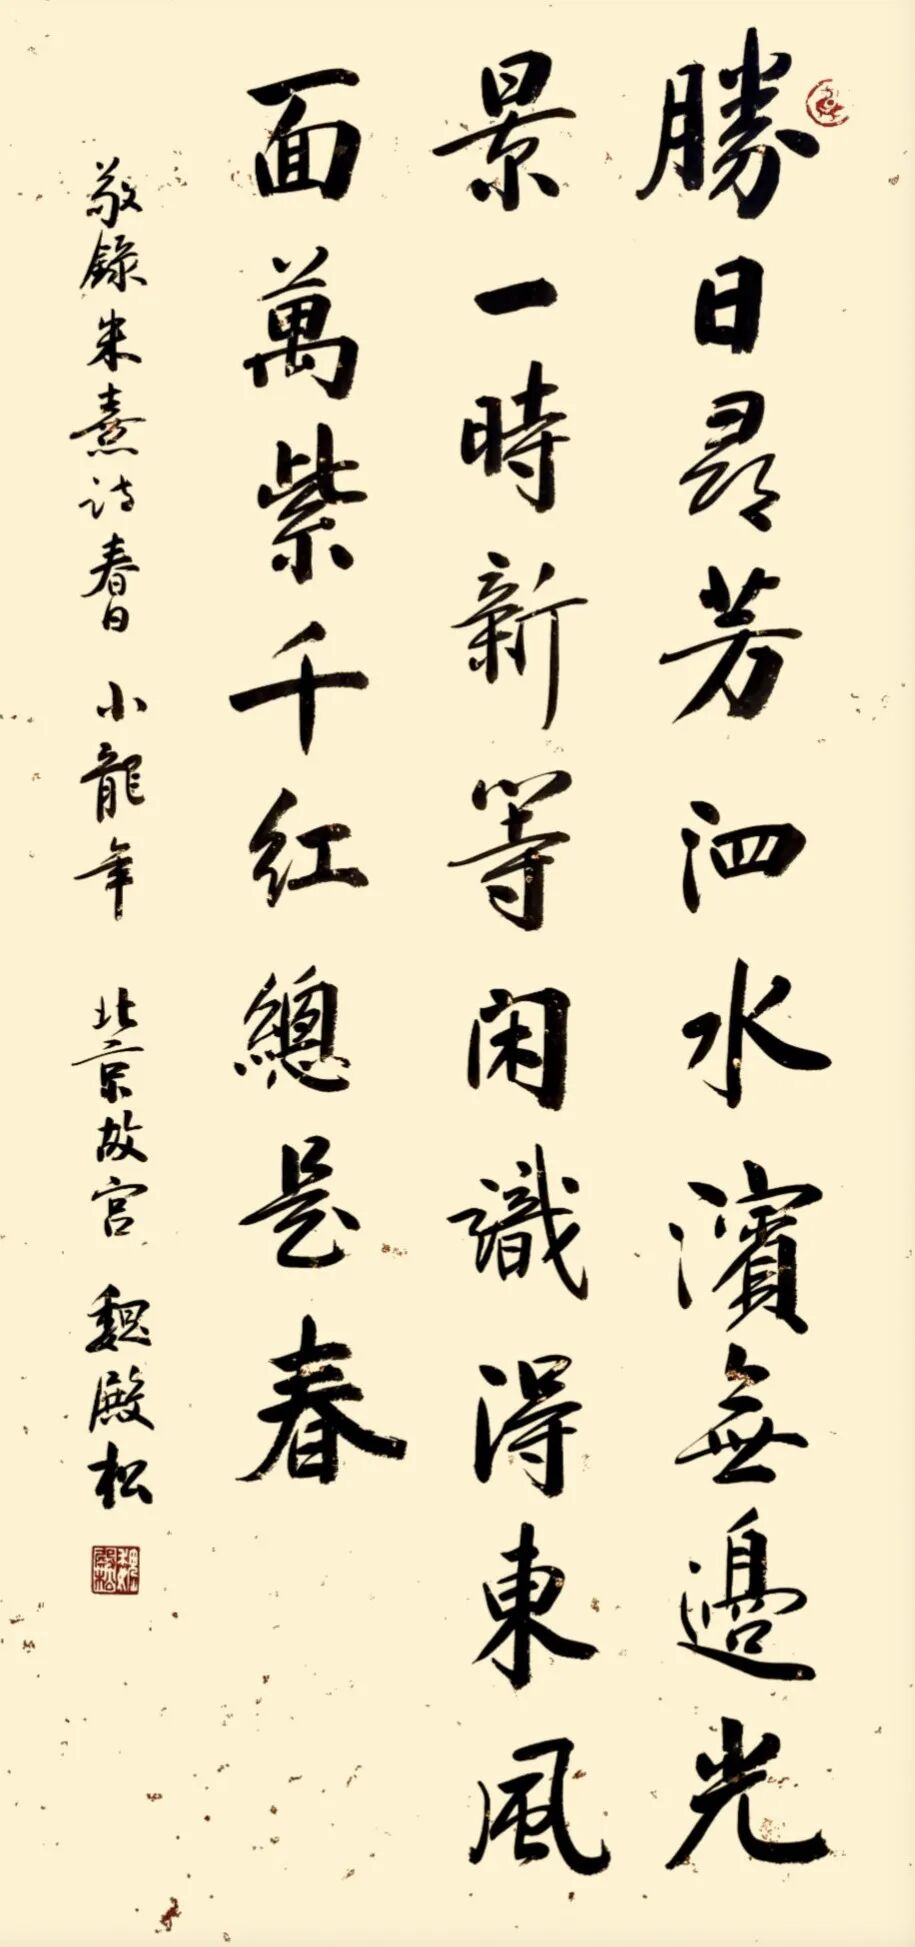 勝日尋芳泗水濱無邊光
景一時新等闲識得東風
面萬紫千红總是春
敬錄朱熹诗春日 小龍年 北京故宫 魏殿松
魏殿松